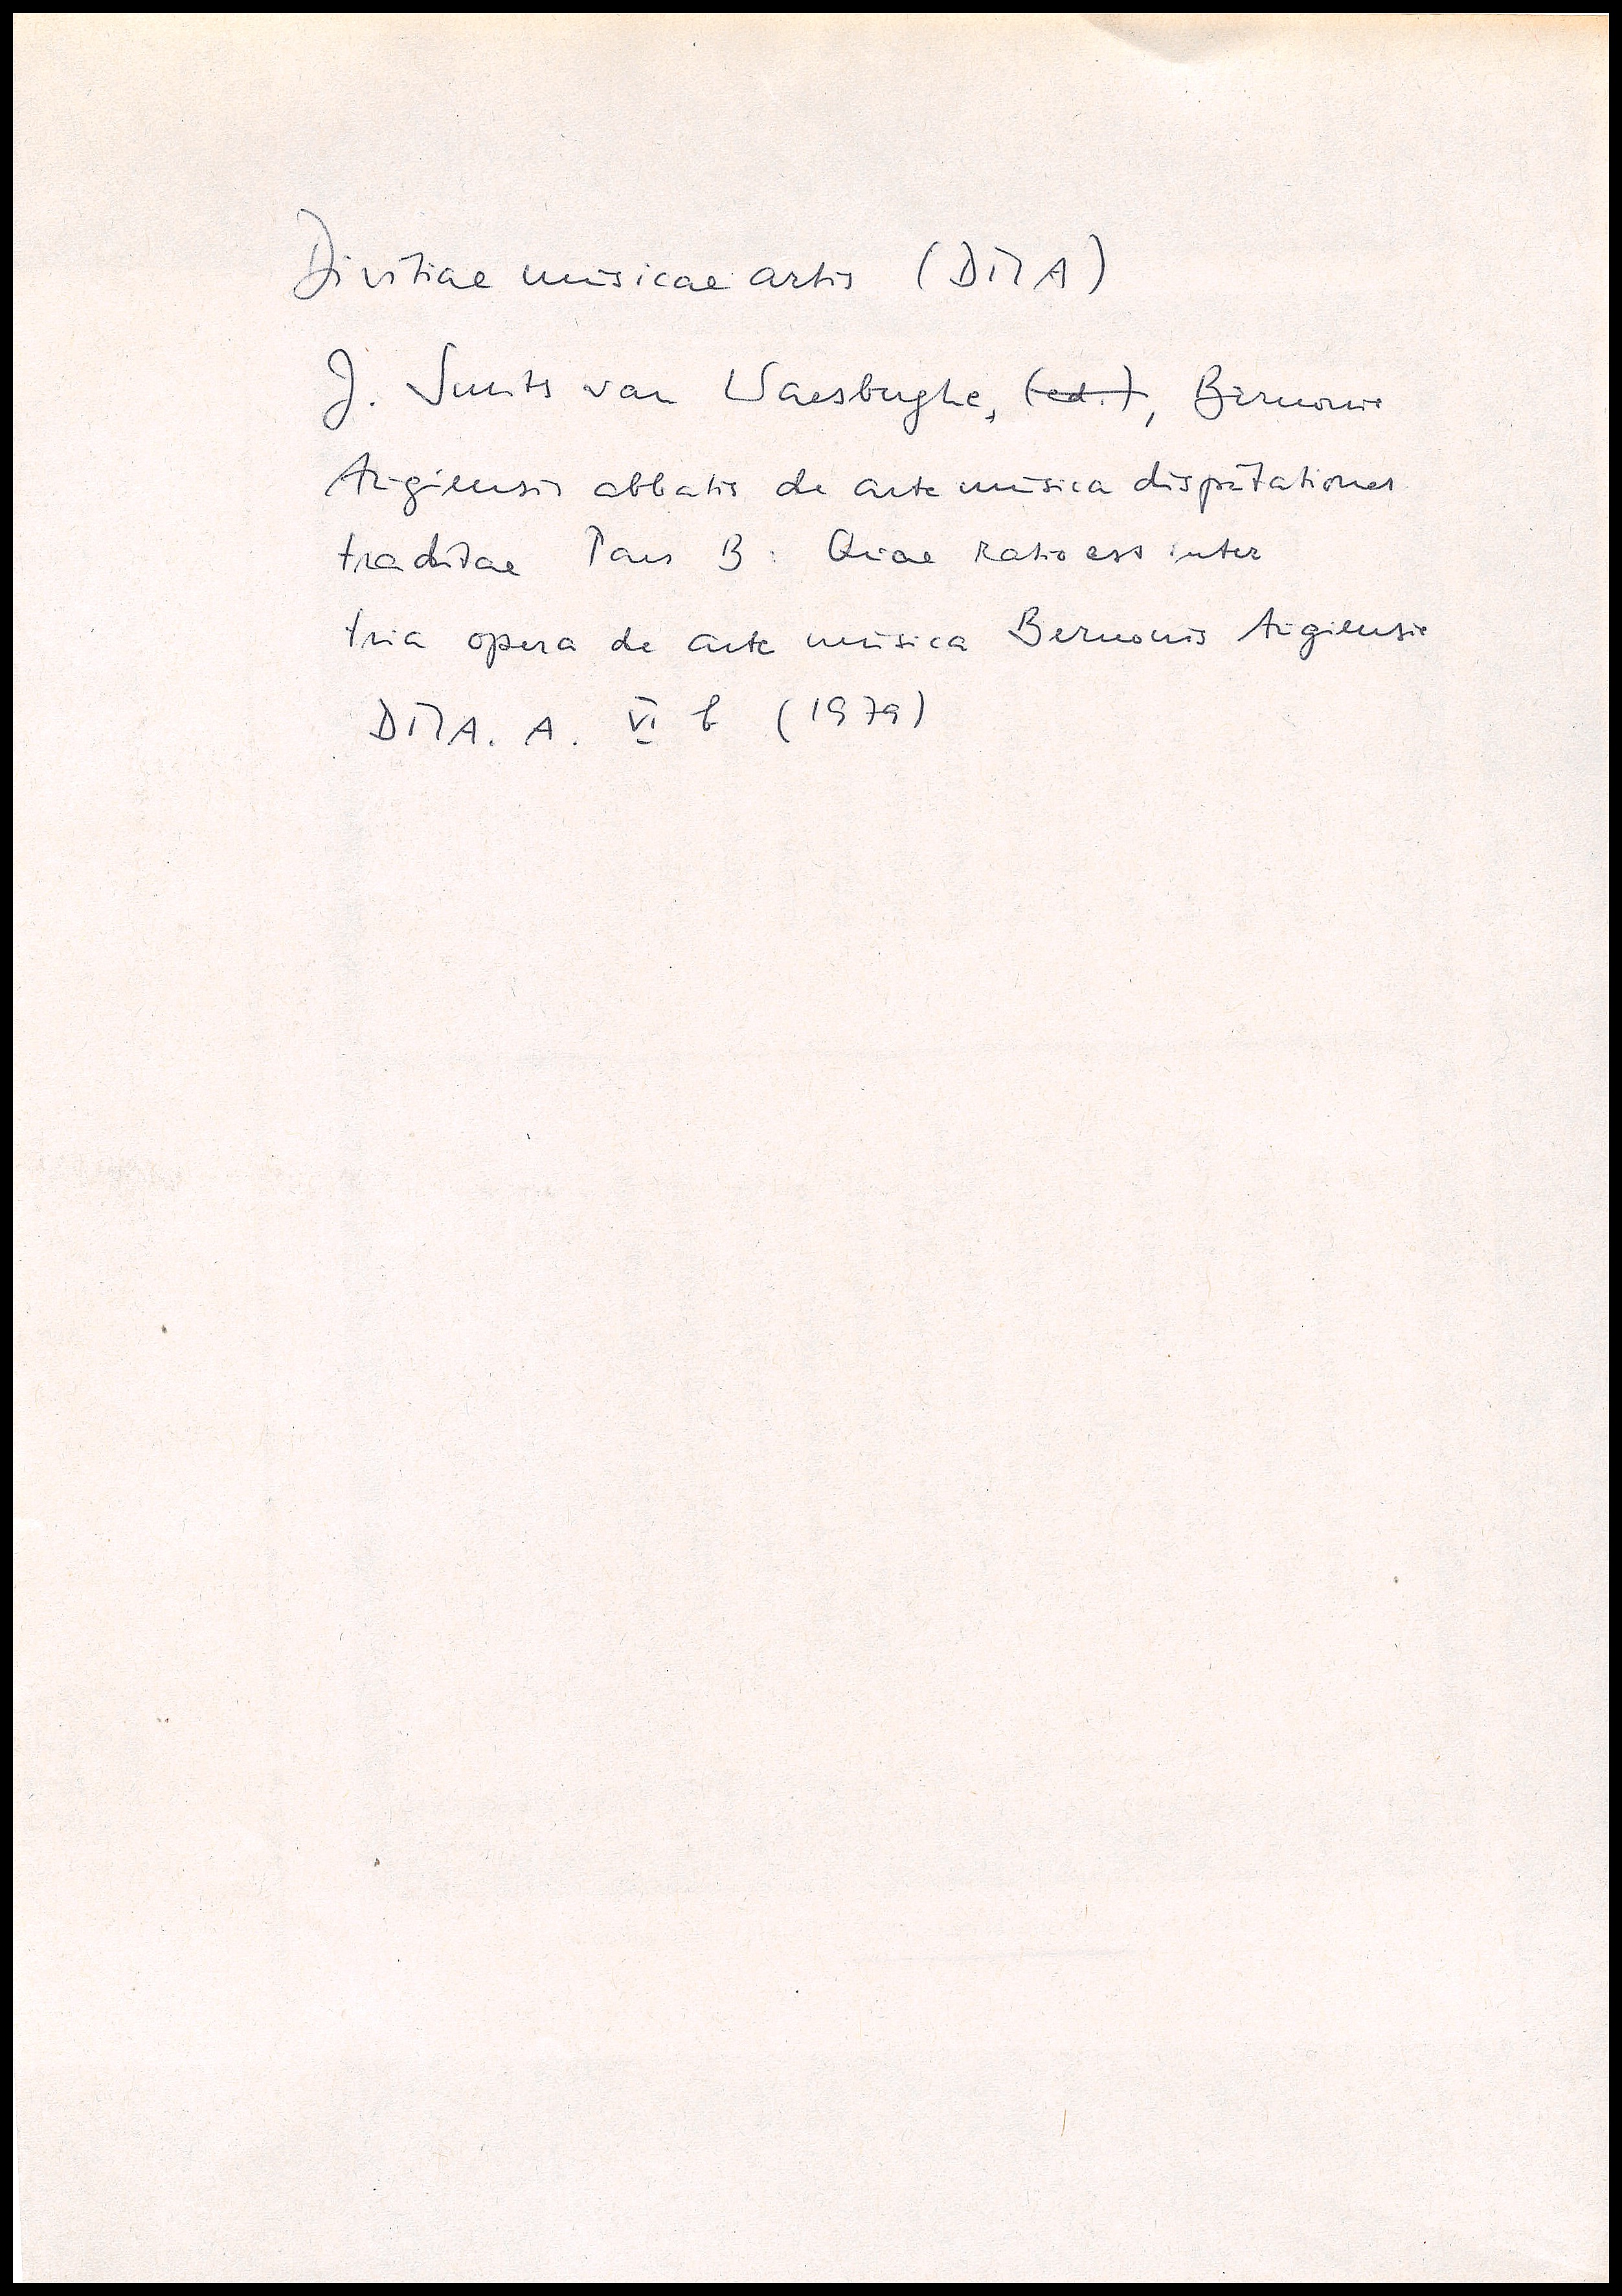 Divitiae musicae artis (DMA)
J. Smits van Waesberghe, (ed.), Bernonis
Augiensis abbatis de arte musica disputationes
traditae Pars B: Quae ratio est inter
tria opera de arte musica Bernonis Augiensis
DMA. A. VI b (1979)